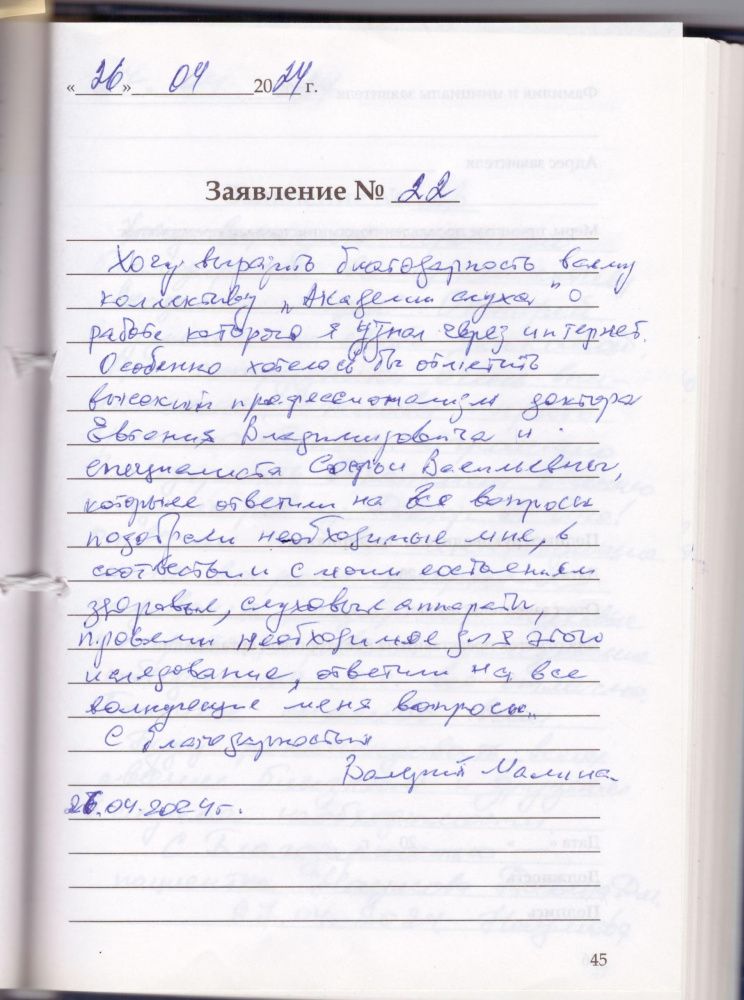 «26» 04 2024 г.
Заявление № 22
Хочу выразить благодарность вашему
коллективу „Академии слуха" о
работе которого я узнал через интернет.
Особенно хотелось бы отметить
высокий профессионализм доктора
Евгения Владимировича и
специалиста Софьи Васильевны,
которые ответили на все вопросы
подобрали необходимые мне, в
соотвествии с моим состоянием
здоровья, слуховые аппараты,
провели необходимое для этого
иследование, ответили на все
волнующие меня вопросы.
С благодарностью
Валерий Малина
26.04.2024г.
45